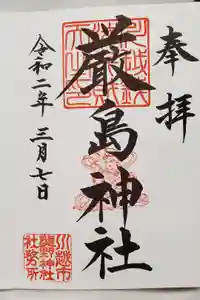 奉拝
厳島神社
令和二年三月七日
川越市
熊野神社
社務所